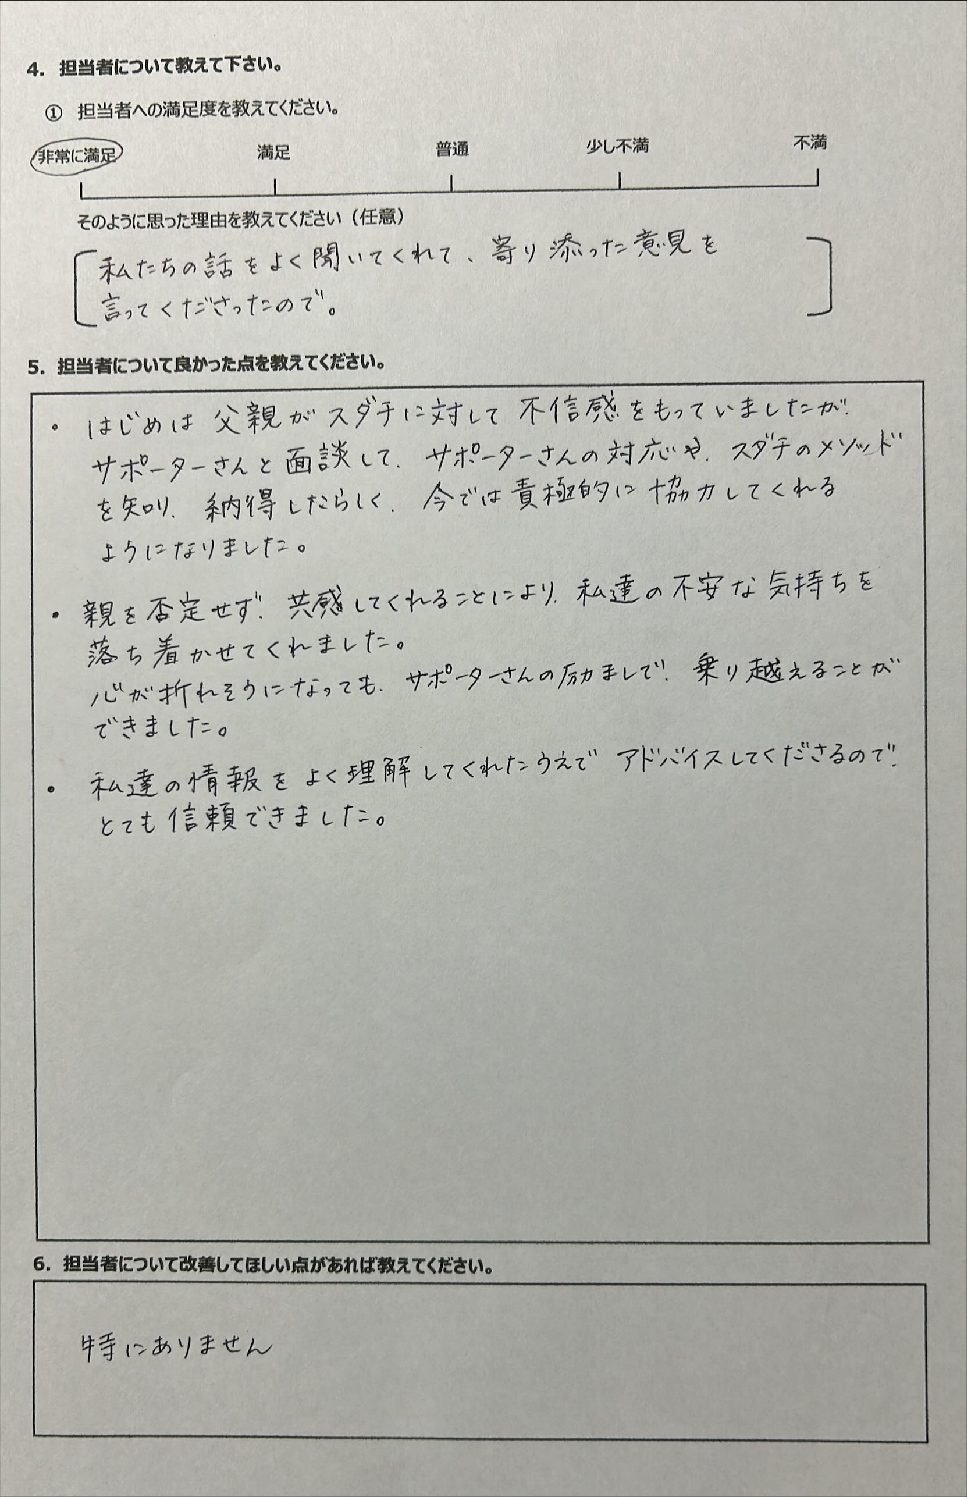 4. 担当者について教えて下さい。
① 担当者への満足度を教えてください。
非常に満足 満足 普通 少し不満 不満
そのように思った理由を教えてください（任意）
私たちの話をよく聞いてくれて、寄り添った意見を
言ってくださったので。
5. 担当者について良かった点を教えてください。
・はじめは父親がスダチに対して不信感をもっていましたが、
サポーターさんと面談して、サポーターさんの対応や、スダチのメソッド
を知り、納得したらしく、今では責極的に協力してくれる
ようになりました。
・親を否定せず、共感してくれることにより、私達の不安な気持ちを
落ち着かせてくれました。
心が折れそうになっても、サポーターさんの励ましで、乗り越えることが
できました。
・私達の情報をよく理解してくれたうえでアドバイスしてくださるので、
とても信頼できました。
6. 担当者について改善してほしい点があれば教えてください。
特にありません